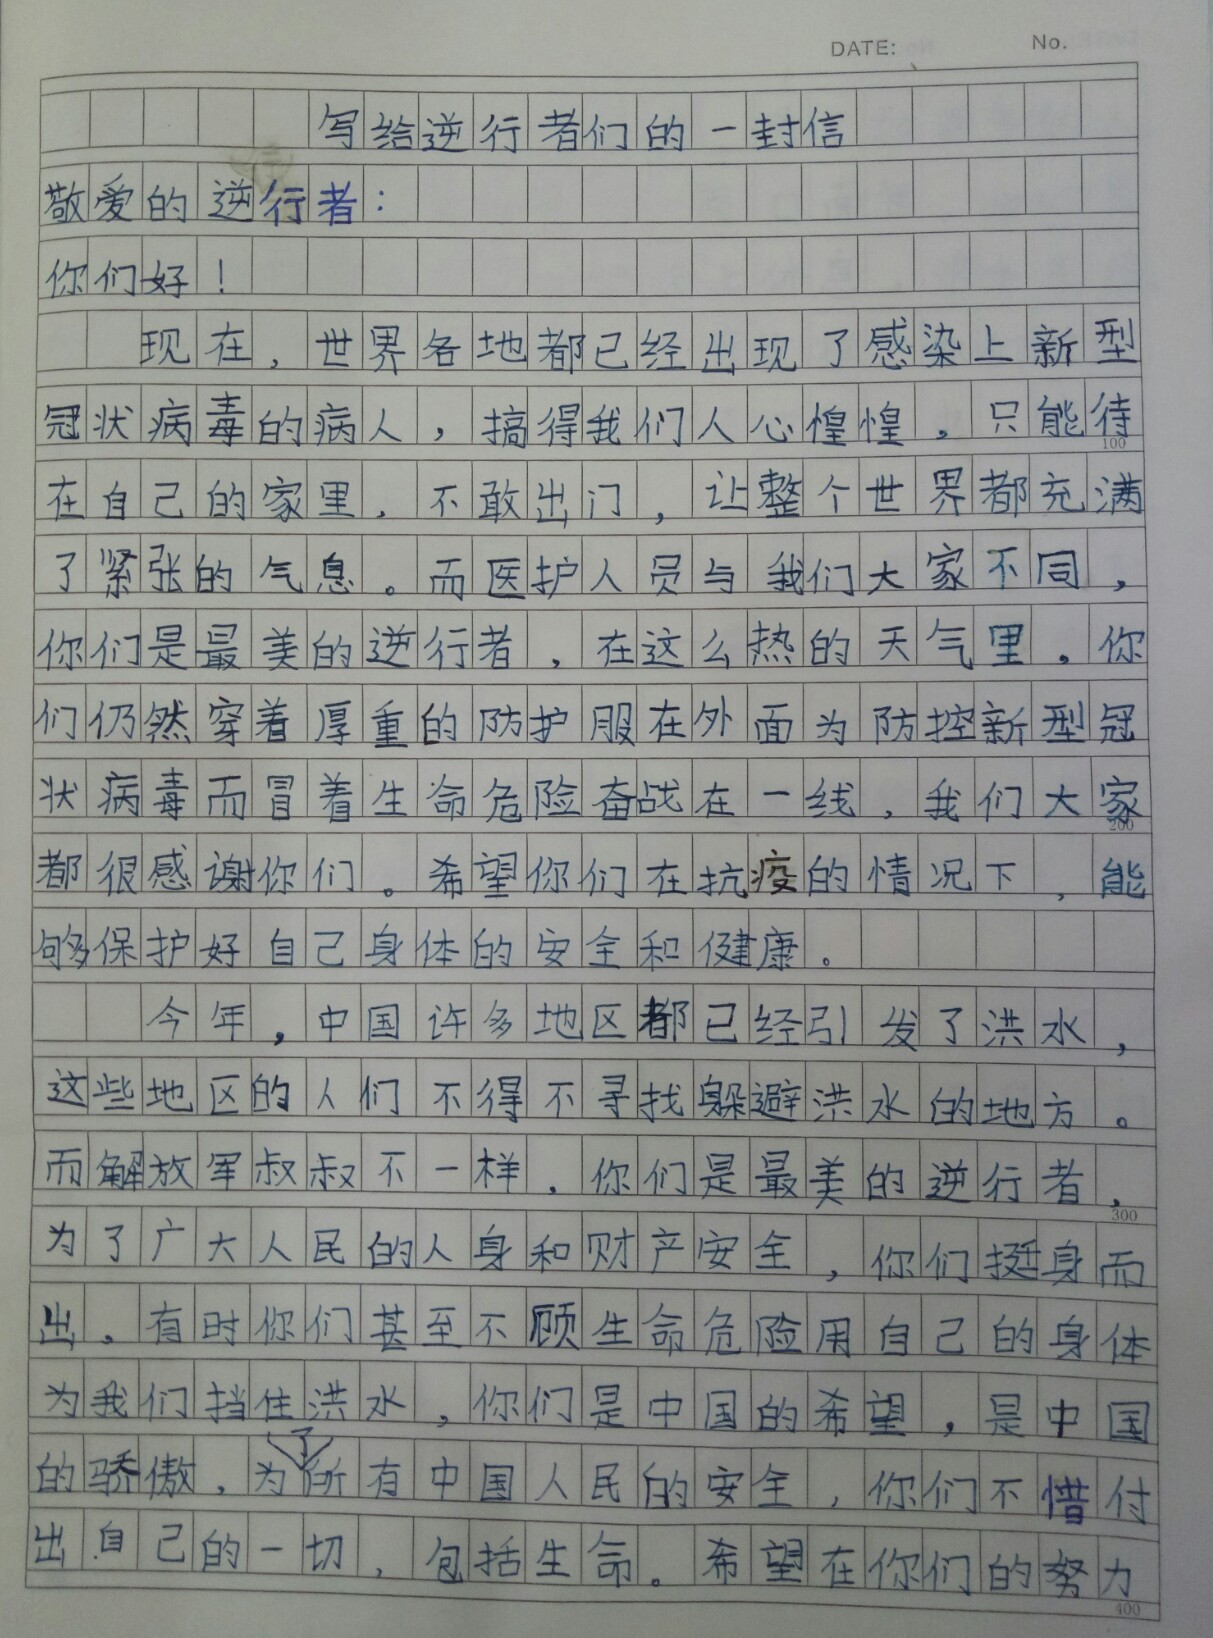 DATE: No.
写给逆行者们的一封信
敬爱的逆行者：
你们好！
现在，世界各地都已经出现了感染上新型
冠状病毒的病人，搞得我们人心惶惶，只能待
100
在自己的家里，不敢出门，让整个世界都充满
了紧张的气息。而医护人员与我们大家不同，
你们是最美的逆行者，在这么热的天气里，你
们仍然穿着厚重的防护服在外面为防控新型冠
状病毒而冒着生命危险奋战在一线，我们大家
200
都很感谢你们。希望你们在抗疫的情况下，能
够保护好自己身体的安全和健康。
今年，中国许多地区都已经引发了洪水，
这些地区的人们不得不寻找躲避洪水的地方。
而解放军叔叔不一样，你们是最美的逆行者，
300
为了广大人民的人身和财产安全，你们挺身而
出，有时你们甚至不顾生命危险用自己的身体
为我们挡住洪水，你们是中国的希望，是中国
的骄傲，为了所有中国人民的安全，你们不惜付
出自己的一切，包括生命。希望在你们的努力
400